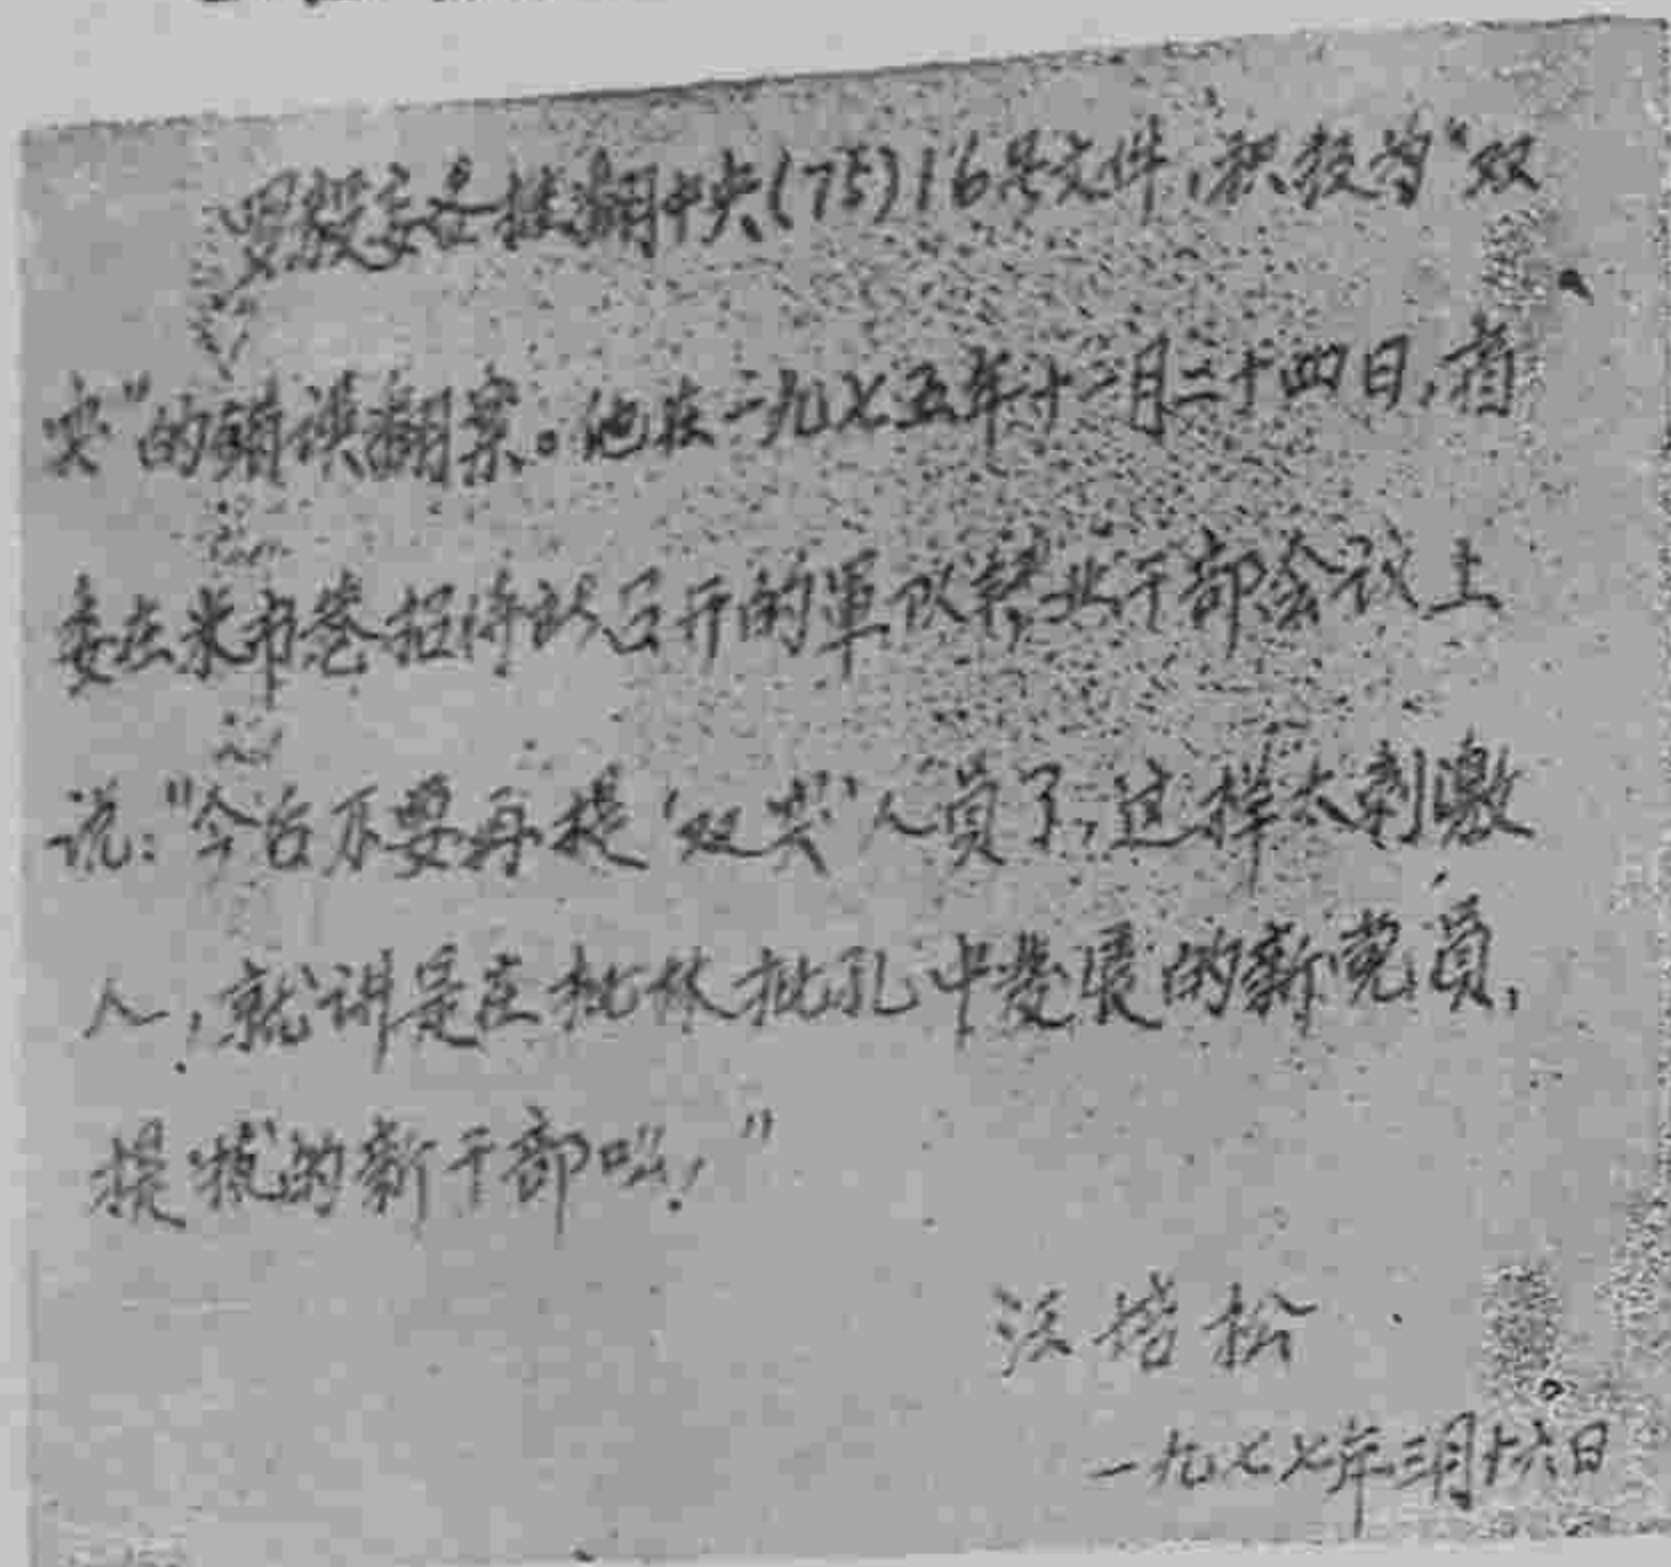 罗毅妄图推翻中央(75)16号文件,积极为“双
突”的错误翻案。他在一九七五年十二月二十四日,省
委在米市巷招待所召开的军队转业干部会议上
说:“今后不要再提‘双突’人员了,这样太刺激
人,就讲是在批林批孔中发展的新党员,
提拔的新干部吆!”
汪培松
一九七七年三月十六日